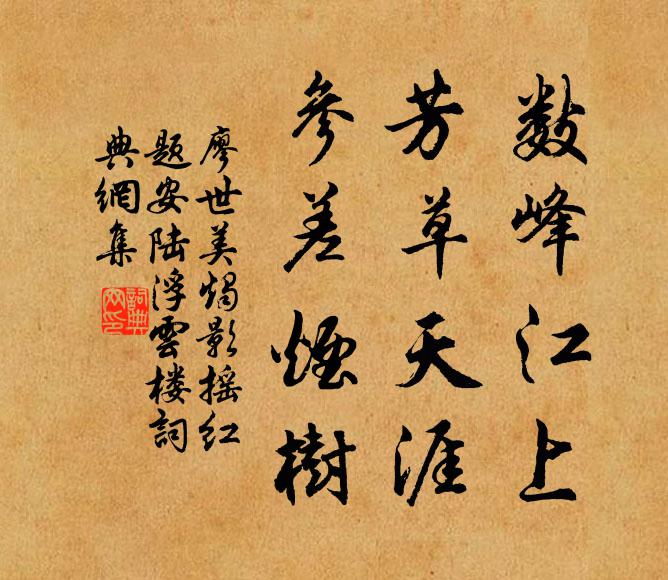 數峰江上
芳草天涯
參差煙樹
廖世美燭影搖紅
題安陸浮雲樓詞
典網集
詞典
网印